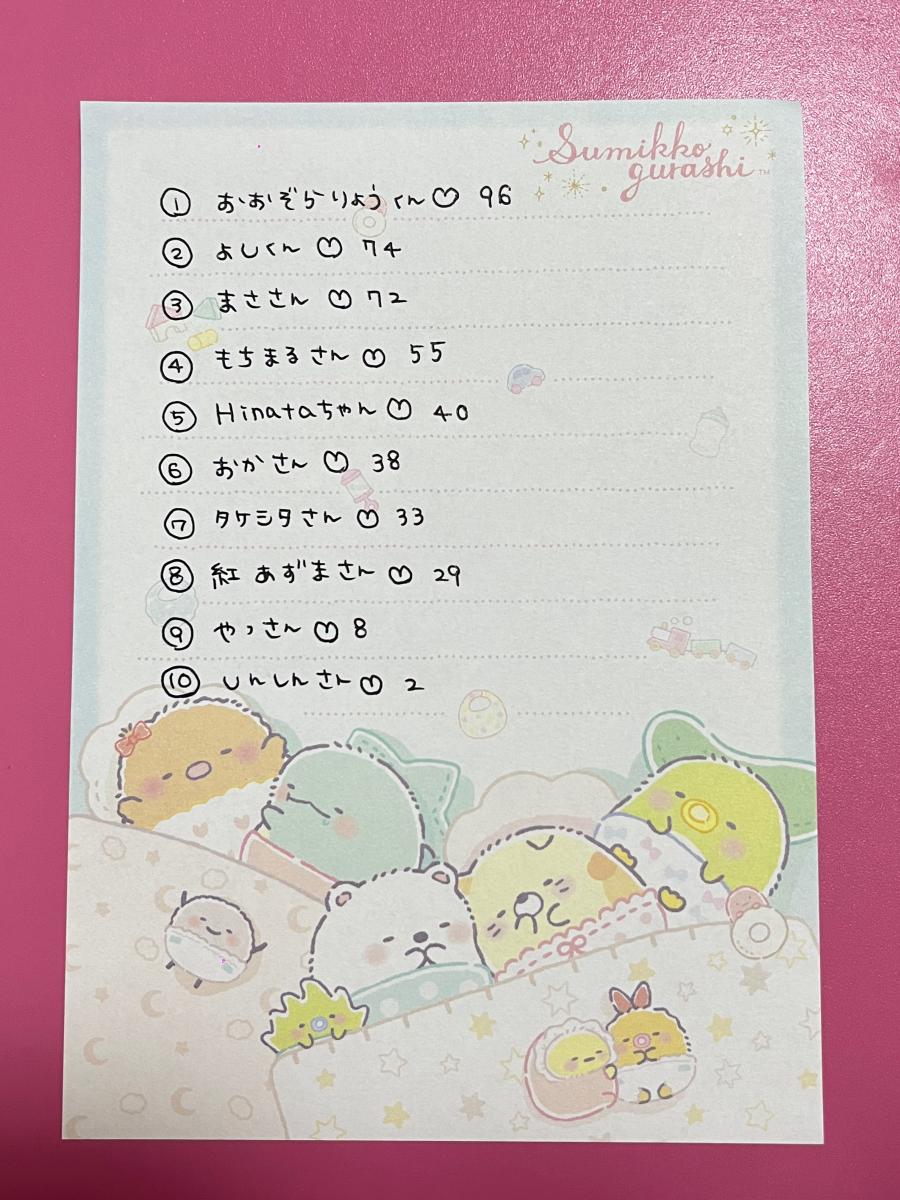 Sumikko
gurashi™
① おおぞらりょうくん♡ 96
② よしくん ♡ 74
③ まささん ♡ 72
④ もちまるさん ♡ 55
⑤ Hinataちゃん♡ 40
⑥ おかさん ♡ 38
⑦ タケシタさん ♡ 33
⑧ 紅 あずまさん ♡ 29
⑨ やっさん ♡ 8
⑩ しんしんさん ♡ 2